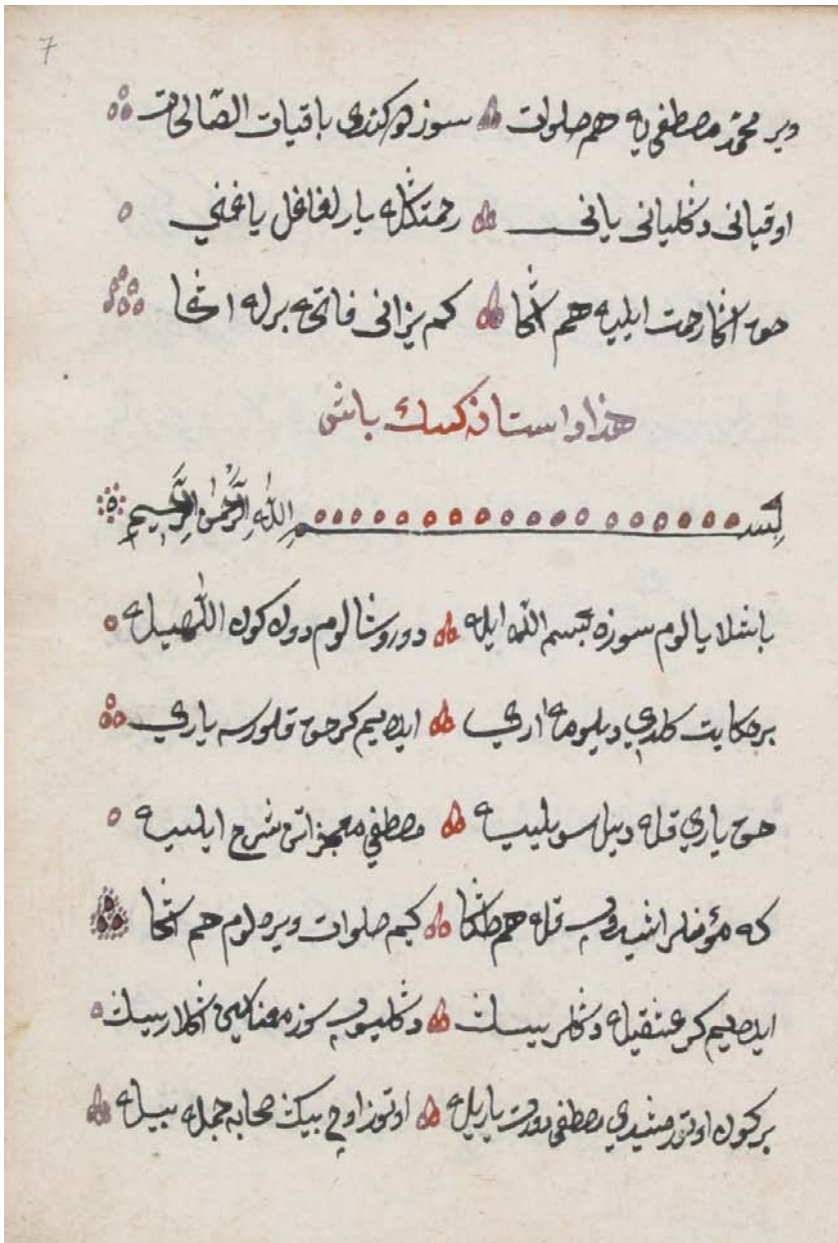 7
وير محمد مصطفی یه هم صلوات سوز دوكندی باقیات الصالحات
اوقیانی دڭلیانی یازنی رحمتڭله یارلغاغل یاغنی
حق اڭا رحمت ایلیه هم اڭا كم یزانی فاتحه برله اڭا
هذا داستان كسك باش
بسم الله الرحمن الرحیم
باشلایالوم سوزه بسم الله ایله دوروشالوم دون كون اللهیله
بر حكایت كلدی دیلومه اری ایدهیم كر حق قلورسه یاری
حق یاری قله دیل سویلییه مصطفی معجزاتن شرح ایلییه
كه مؤمنلر اشیدوب قله هم طڭا كیم صلوات ویرهلوم هم اڭا
ایدهیم كر عشقیله دڭلرسیسڭ دڭلیوب سوز معناسین اڭلارسیڭ
بر كون اوتورمشیدی مصطفی دورت یاریله اوتوز اوچ بیڭ صحابه جمله بیله